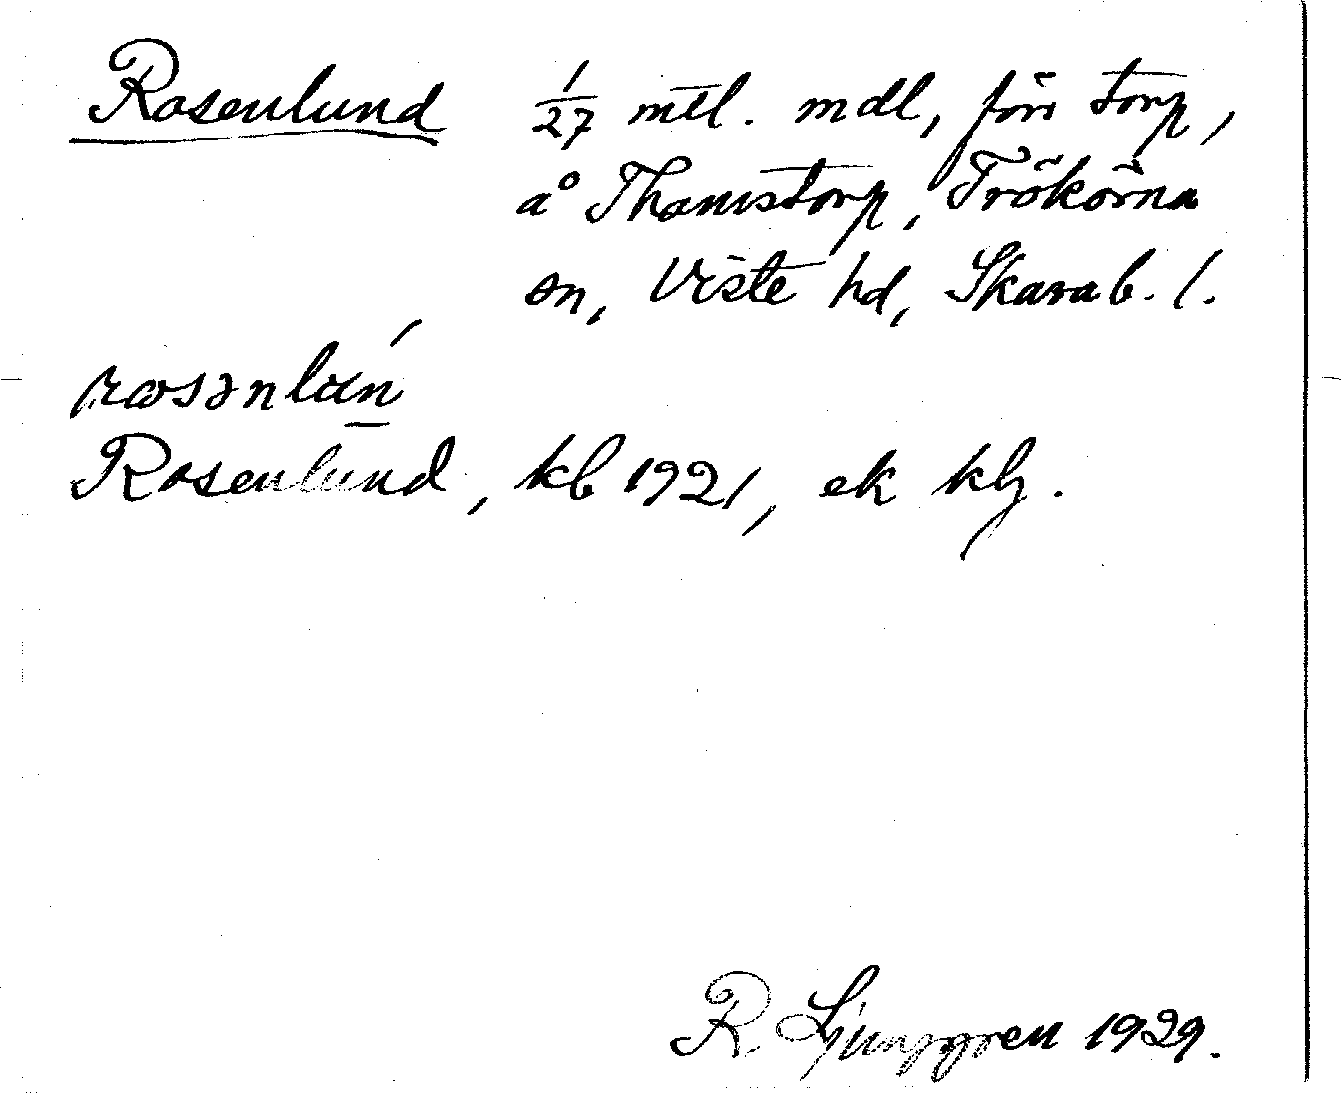 Rosenlund 1/27 mtl. mdl, förr torp,
å Thamstorp, Trökörna
sn, Viste hd, Skarab. l.
Rosenlund, kb 1921, ek klg.
R. Ljunggren 1929.